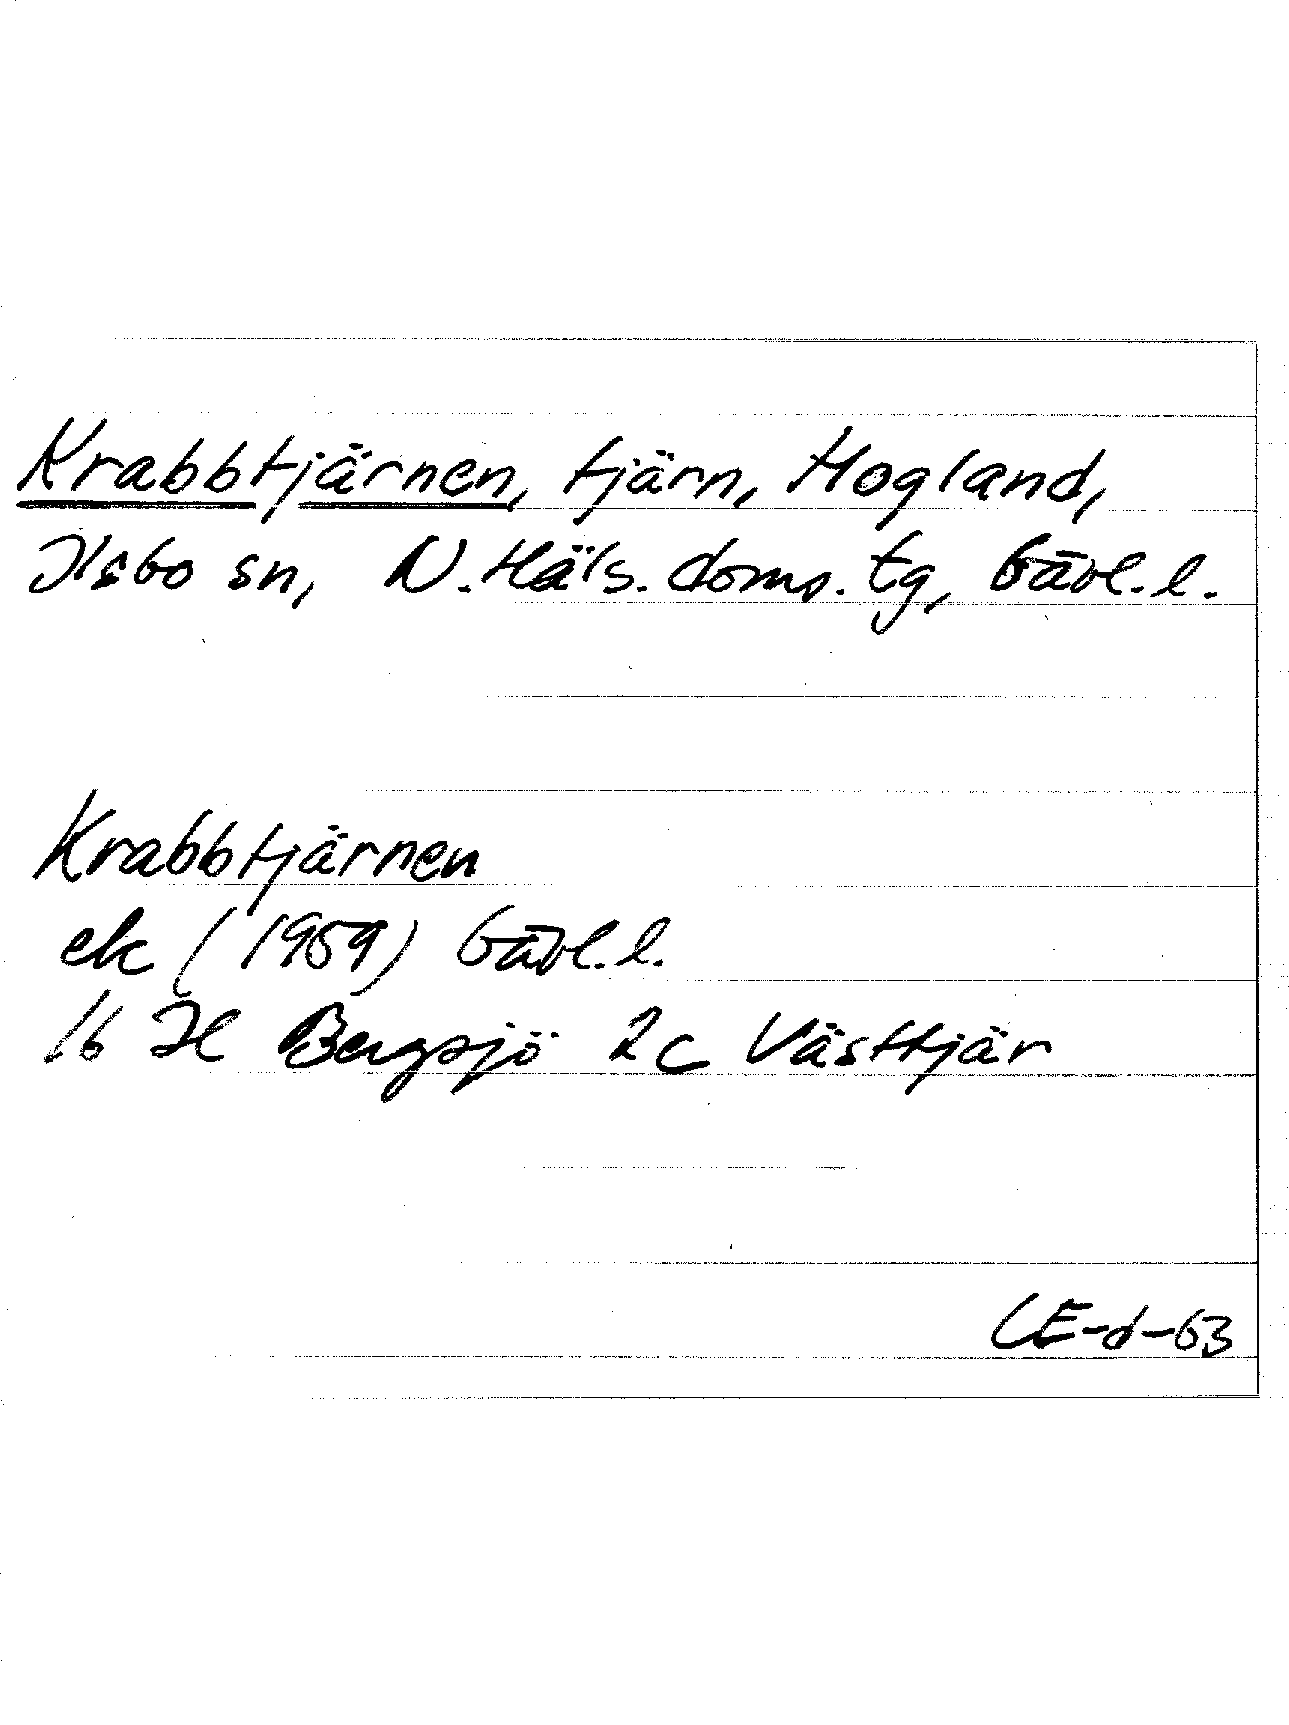 Krabbtjärnen, tjärn, Hogland,
Ilsbo sn, N. Häls. doms. tg, Gävl. l.
Krabbtjärnen
ek (1959) Gävl. l.
16 H Bergsjö 2c Västtjär
CE-d-63